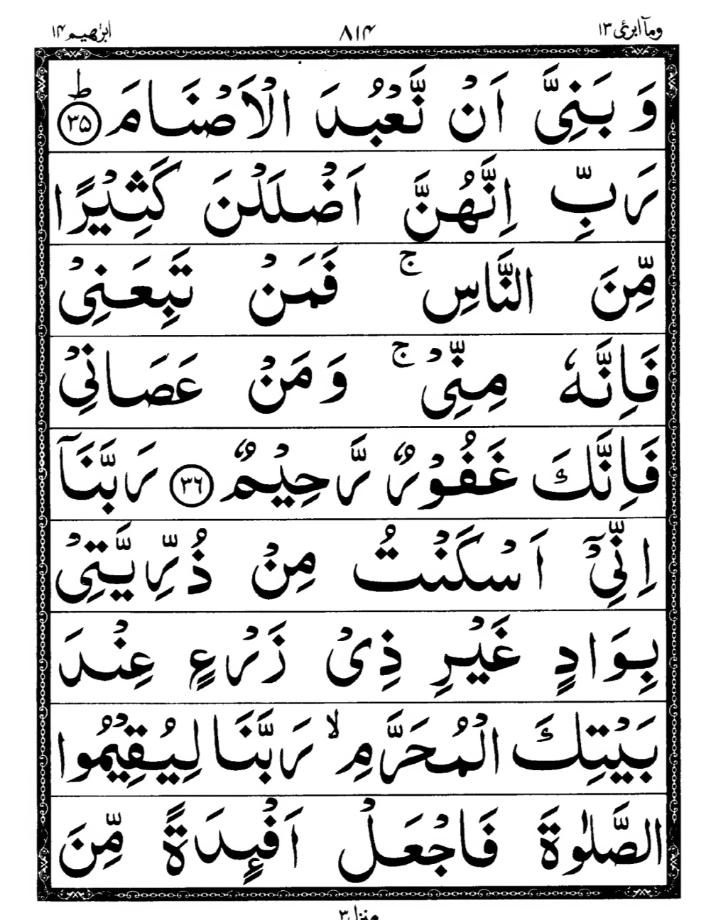 ابرٰهيم ١٤ ٨١٤ ومآ ابرئ ١٣
وَ بَنِيَّ اَنْ نَّعْبُدَ الْاَصْنَامَ ؕ ﴿۳۵﴾
رَبِّ اِنَّهُنَّ اَضْلَلْنَ كَثِيْرًا
مِّنَ النَّاسِ ۚ فَمَنْ تَبِعَنِيْ
فَاِنَّهٗ مِنِّيْ ۚ وَ مَنْ عَصَانِيْ
فَاِنَّكَ غَفُوْرٌ رَّحِيْمٌ ﴿۳۶﴾ رَبَّنَآ
اِنِّيْٓ اَسْكَنْتُ مِنْ ذُرِّيَّتِيْ
بِوَادٍ غَيْرِ ذِيْ زَرْعٍ عِنْدَ
بَيْتِكَ الْمُحَرَّمِ ۙ رَبَّنَا لِيُقِيْمُوا
الصَّلٰوةَ فَاجْعَلْ اَفْـِٕدَةً مِّنَ
منزل ٣